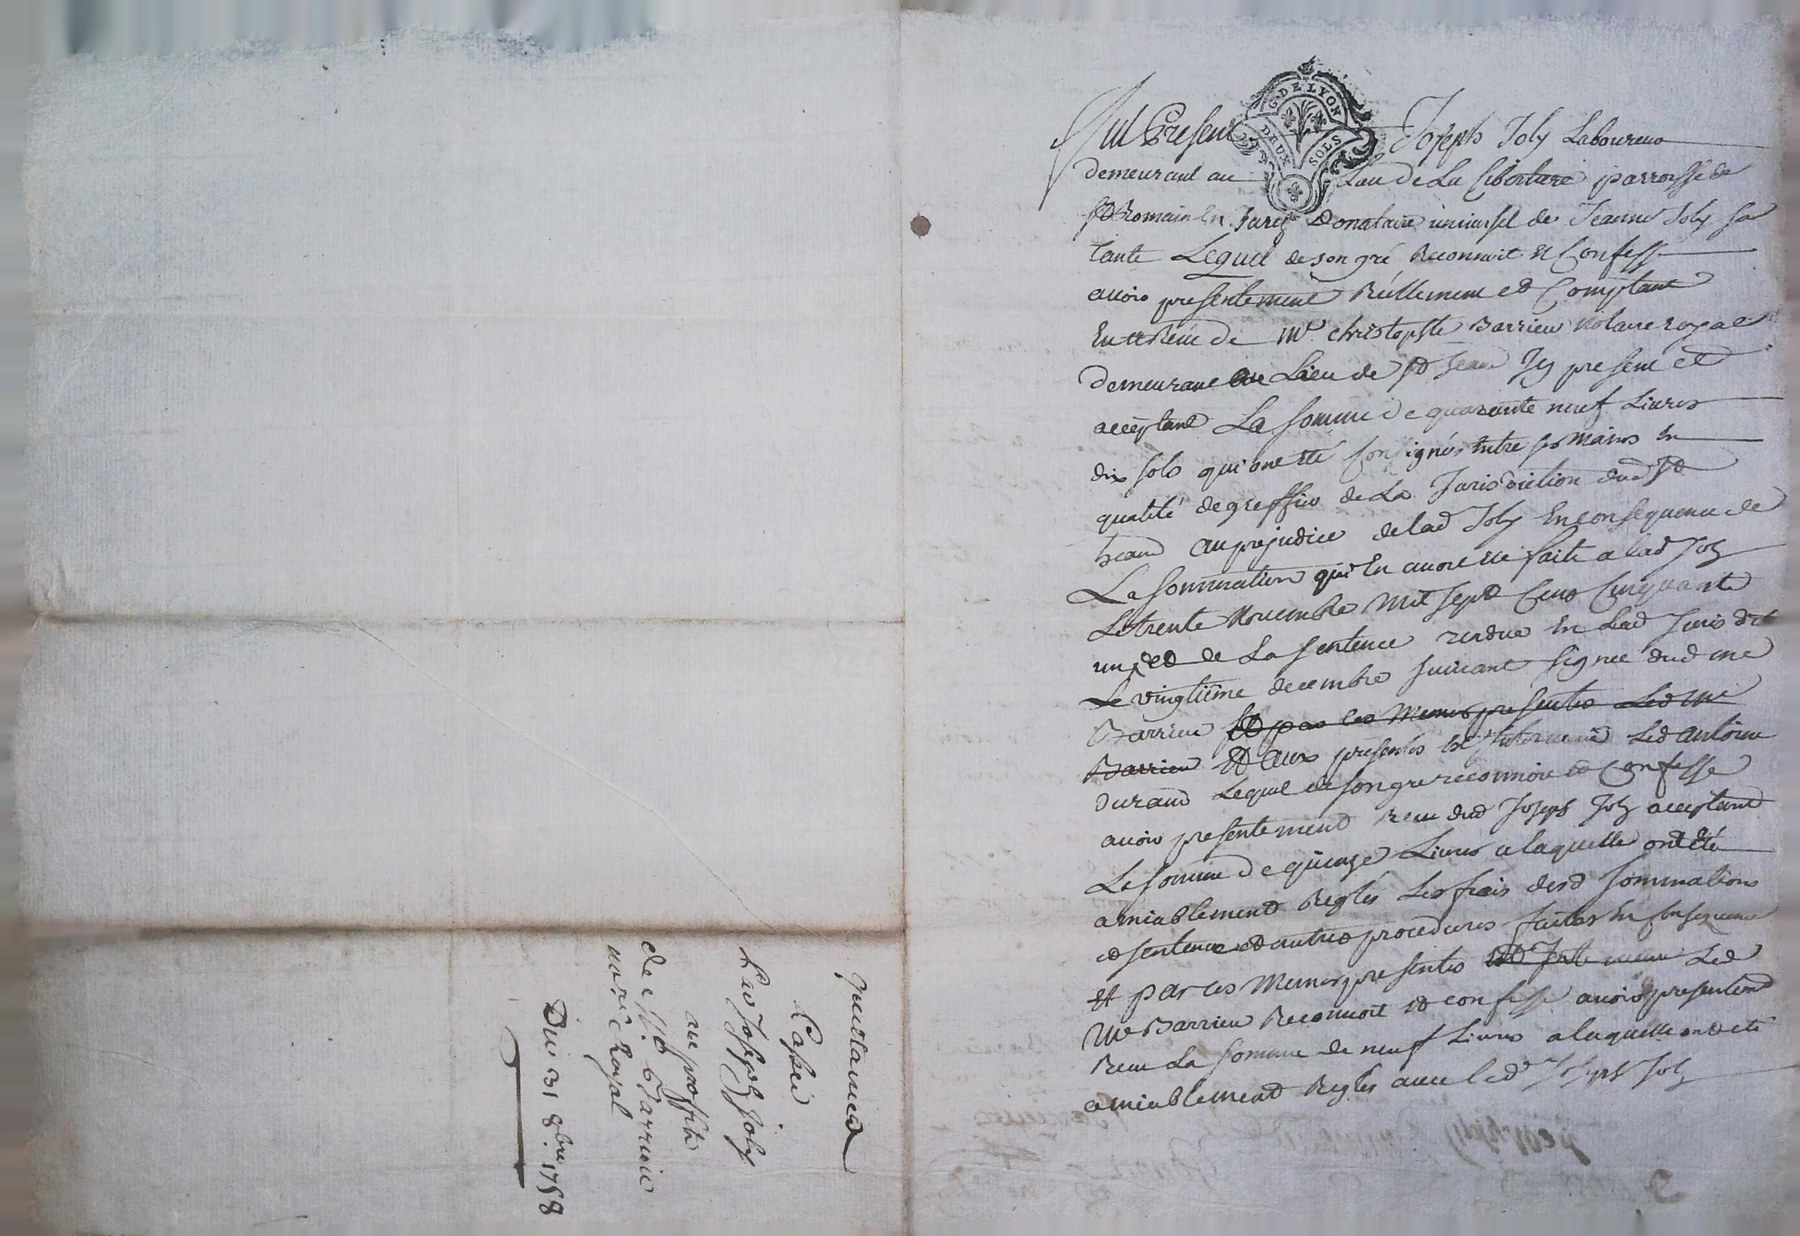 quittances
passée
par Joseph Joly
au proffit
de Me Barrieu
nore Royal
Du 31 8bre 1758
G. DE LYON
DEUX SOLS
Fut Present Joseph Joly Laboureur
demeurant au Lieu de La parroisse de
St Romain En Jarez Donataire universel de Jeanne Joly sa
tante Lequel de son gré Reconnoit et Confesse
avoir presentement Réellement et Comptant
de Me Christophle Barrieu Notaire royal
demeurant au Lieu de St Jean Icy present et
acceptant La somme de quarante neuf Livres
dix sols qui ont été Consignés Entre ses mains En
qualité de greffier de La Jurisdiction dud St
Jean au prejudice de lad Joly En consequence de
La sommation qui En avoit été faite a lad Joly
Le trente Novembre mil sept Cent Cinquante
un et de La sentence rendue En lad Jurisdict
Le vingtiéme decembre suivant signée dud me
Barrieu Et par ces Memes presentes Led me
Barrieu Et aux presentes Est Intervenu Led antoine
durand Lequel de son gre reconnoit et Confesse
avoir presentement Receu dud Joseph Joly acceptant
La somme de quinze Livres a laquelle ont été
amiablement Reglés Les frais desd sommations
et sentence et autres procedures faites En Consequence
Et par ces Memes presentes Led
Me Barrieu Reconnoit et confesse avoir presentement
Receu La somme de neuf Livres a laquelle ont été
amiablement Reglés avec led Joseph Joly